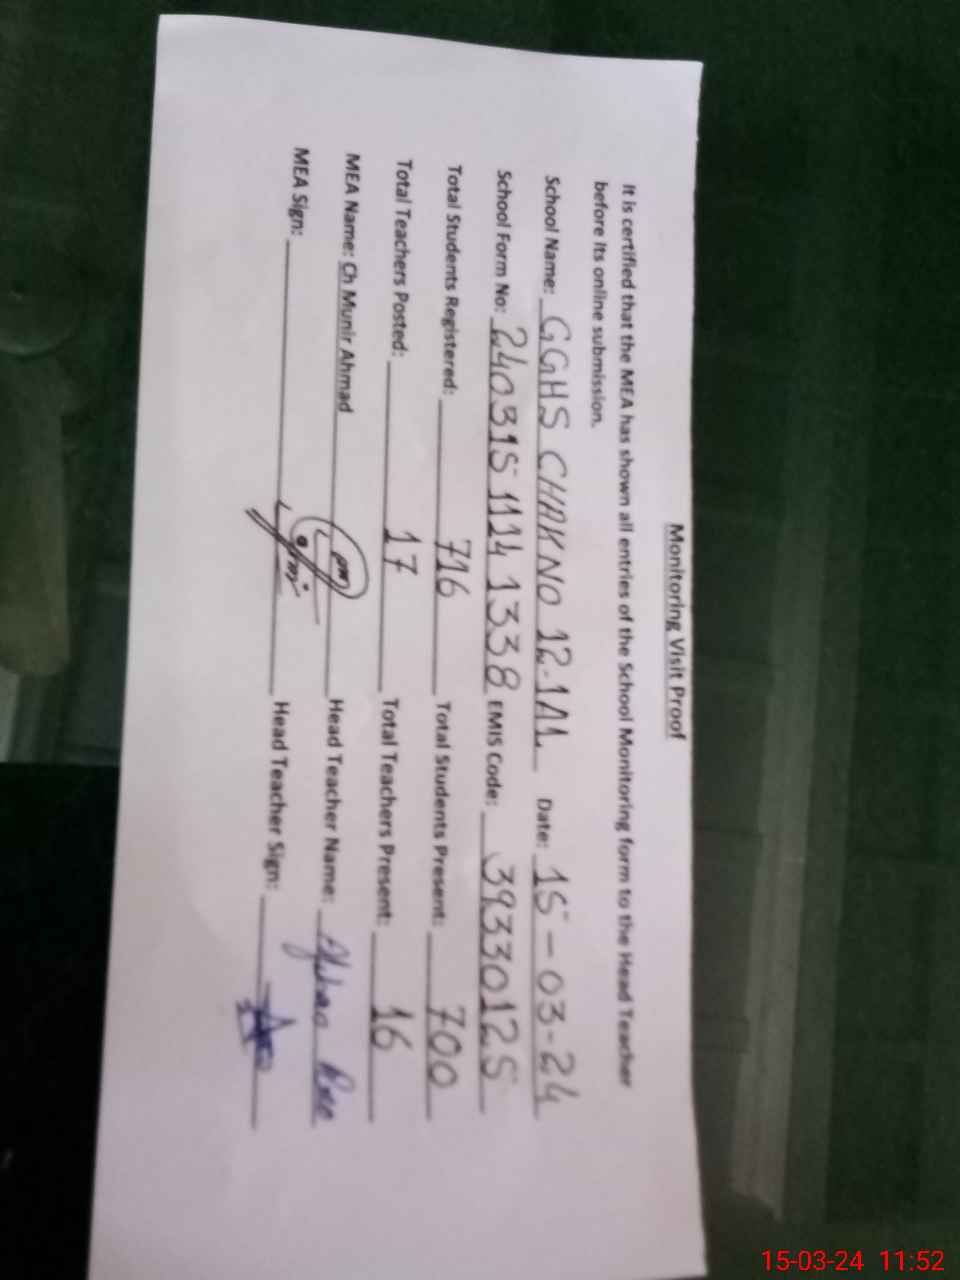 Monitoring Visit Proof
It is certified that the MEA has shown all entries of the School Monitoring form to the Head Teacher
before its online submission.
School Name: GGHS CHAKNO 12-1AL Date: 15-03-24
School Form No: 240315 1114 1338 EMIS Code: 39330125
Total Students Registered: 716 Total Students Present: 700
Total Teachers Posted: 17 Total Teachers Present: 16
MEA Name: Ch Munir Ahmad Head Teacher Name:
MEA Sign: Head Teacher Sign:
15-03-24 11:52